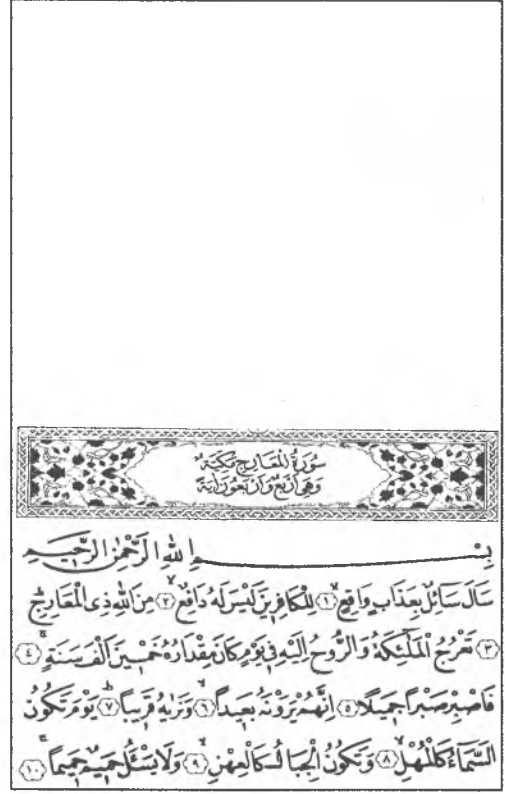 سُورَةُ الْمَعَارِجِ مَكِّيَّةٌ
وَهِيَ اَرْبَعٌ وَاَرْبَعُونَ اٰيَةً
بِسْمِ اللّٰهِ الرَّحْمٰنِ الرَّحيمِ
سَاَلَ سَائِلٌ بِعَذَابٍ وَاقِعٍۙ ﴿١﴾ لِلْكَافِرينَ لَيْسَ لَهُ دَافِعٌۙ ﴿٢﴾ مِنَ اللّٰهِ ذِى الْمَعَارِجِۜ
﴿٣﴾ تَعْرُجُ الْمَلٰٓئِكَةُ وَالرُّوحُ اِلَيْهِ فى يَوْمٍ كَانَ مِقْدَارُهُ خَمْسينَ اَلْفَ سَنَةٍۚ ﴿٤﴾
فَاصْبِرْ صَبْراً جَميلاً ﴿٥﴾ اِنَّهُمْ يَرَوْنَهُ بَعيداًۙ ﴿٦﴾ وَنَرٰيهُ قَريباًۜ ﴿٧﴾ يَوْمَ تَكُونُ
السَّمَٓاءُ كَالْمُهْلِۙ ﴿٨﴾ وَتَكُونُ الْجِبَالُ كَالْعِهْنِۙ ﴿٩﴾ وَلَا يَسْـَٔلُ حَميمٌ حَميماًۚ ﴿١٠﴾